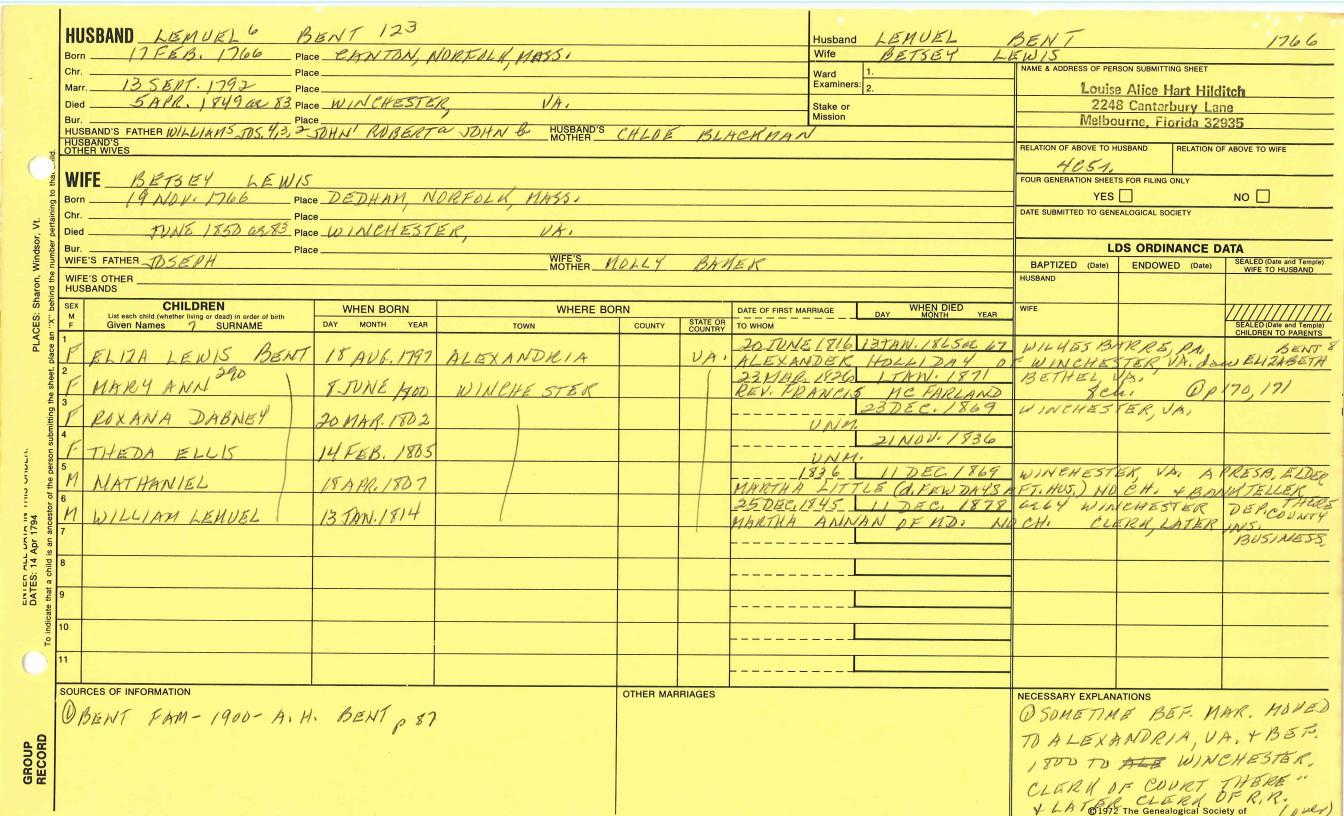 HUSBAND LEMUEL 6 BENT 123
Born 17 FEB. 1766 Place CANTON, NORFOLK, MASS.
Chr. Place
Marr. 13 SEPT. 1792 Place
Died 5 APR. 1849 ae 83 Place WINCHESTER, VA.
Bur. Place
HUSBAND'S FATHER WILLIAM5 JOS.4,3,2 JOHN1 ROBERT a JOHN b HUSBAND'S MOTHER CHLOE BLACKMAN
HUSBAND'S OTHER WIVES
Husband LEMUEL BENT 1766
Wife BETSEY LEWIS
Ward Examiners: 1.
2.
Stake or Mission
NAME & ADDRESS OF PERSON SUBMITTING SHEET
Louise Alice Hart Hilditch
2248 Canterbury Lane
Melbourne, Florida 32935
RELATION OF ABOVE TO HUSBAND RELATION OF ABOVE TO WIFE
FOUR GENERATION SHEETS FOR FILING ONLY
YES NO
DATE SUBMITTED TO GENEALOGICAL SOCIETY
WIFE BETSEY LEWIS
Born 19 NOV. 1766 Place DEDHAM, NORFOLK, MASS.
Chr. Place
Died JUNE 1850 ae 83 Place WINCHESTER, VA.
Bur. Place
WIFE'S FATHER JOSEPH WIFE'S MOTHER MOLLY BAKER
WIFE'S OTHER HUSBANDS
LDS ORDINANCE DATA
BAPTIZED (Date) ENDOWED (Date) SEALED (Date and Temple) WIFE TO HUSBAND
HUSBAND
WIFE
SEALED (Date and Temple) CHILDREN TO PARENTS
SEX M F CHILDREN WHEN BORN WHERE BORN DATE OF FIRST MARRIAGE WHEN DIED
List each child (whether living or dead) in order of birth
Given Names 7 SURNAME DAY MONTH YEAR TOWN COUNTY STATE OR COUNTRY TO WHOM DAY MONTH YEAR
1 F ELIZA LEWIS BENT 18 AUG. 1797 ALEXANDRIA VA. 20 JUNE 1816 13 JAN. 1865 ae 67 WILKES BARRE, PA. BENT 8
ALEXANDER HOLLIDAY OF WINCHESTER, VA. dau ELIZABETH
2 F MARY ANN 290 8 JUNE 1800 WINCHESTER 23 MAR. 1826 1 JAN. 1871 BETHEL, VA.
REV. FRANCIS MC FARLAND 8 ch. p 170, 171
3 F ROXANA DABNEY 20 MAR. 1802 23 DEC. 1869 WINCHESTER, VA.
UNM.
4 F THEDA ELLIS 14 FEB. 1805 21 NOV. 1836
UNM.
5 M NATHANIEL 18 APR. 1807 1836 11 DEC. 1869 WINCHESTER, VA. A PRESB. ELDER
MARTHA LITTLE (d. FEW DAYS AFT. HUS.) NO CH. & BANK TELLER THERE
6 M WILLIAM LEMUEL 13 JAN. 1814 25 DEC. 1845 11 DEC. 1878 ae 64 WINCHESTER DEP. COUNTY
MARTHA ANNAN OF MD. NO CH. CLERK, LATER INS. BUSINESS
7
8
9
10.
11
SOURCES OF INFORMATION
① BENT FAM- 1900- A.H. BENT p 87
OTHER MARRIAGES
NECESSARY EXPLANATIONS
① SOMETIME BEF. MAR. MOVED
TO ALEXANDRIA, VA. & BEF.
1800 TO WINCHESTER.
CLERK OF COURT THERE "
& LATER CLERK OF R.R.
©1972 The Genealogical Society of (over)
PLACES: Sharon, Windsor, Vt.
DATES: 14 Apr 1794
To indicate that a child is an ancestor of the person submitting the sheet, place an "X" behind the number pertaining to that child.
GROUP RECORD